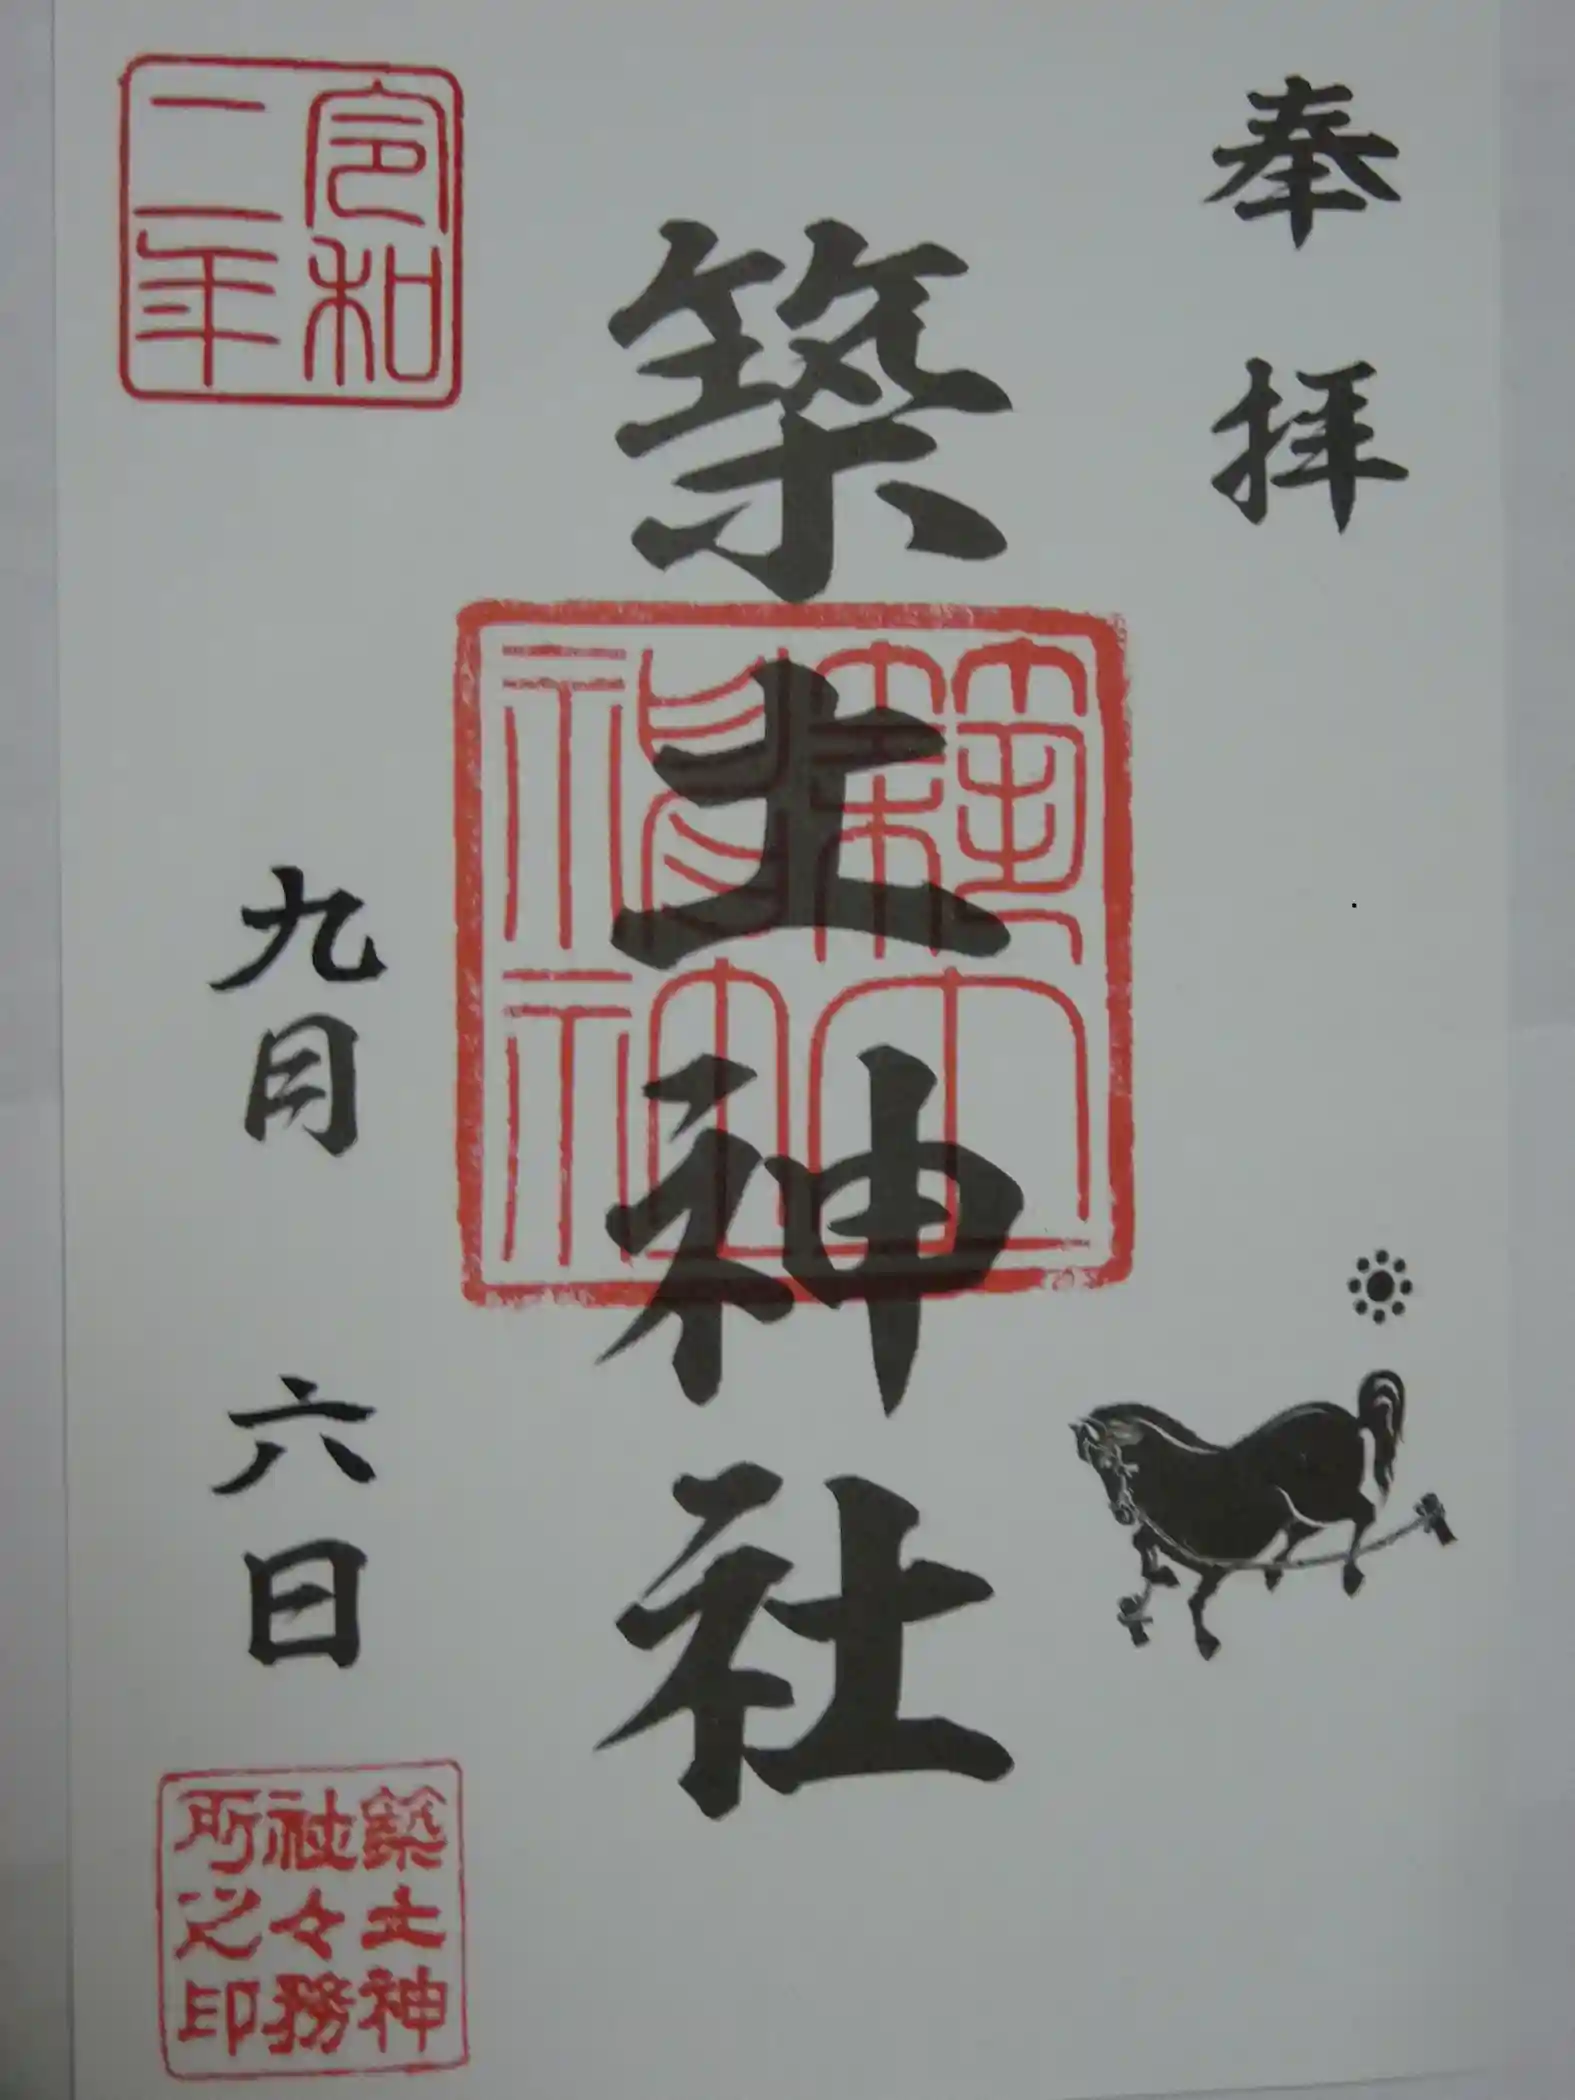 奉拝
築土神社
築土神社
令和
二年
九月六日
築土神
社々務
所之印